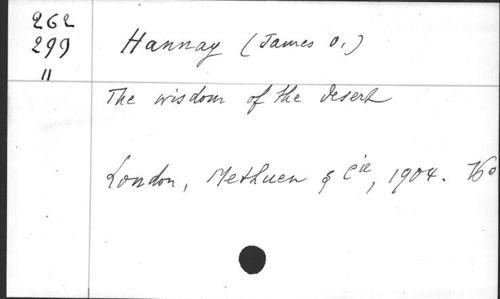 262
299
11
Hannay (James O.)
The wisdom of the desert
London, Methuen & Cie, 1904. 16°